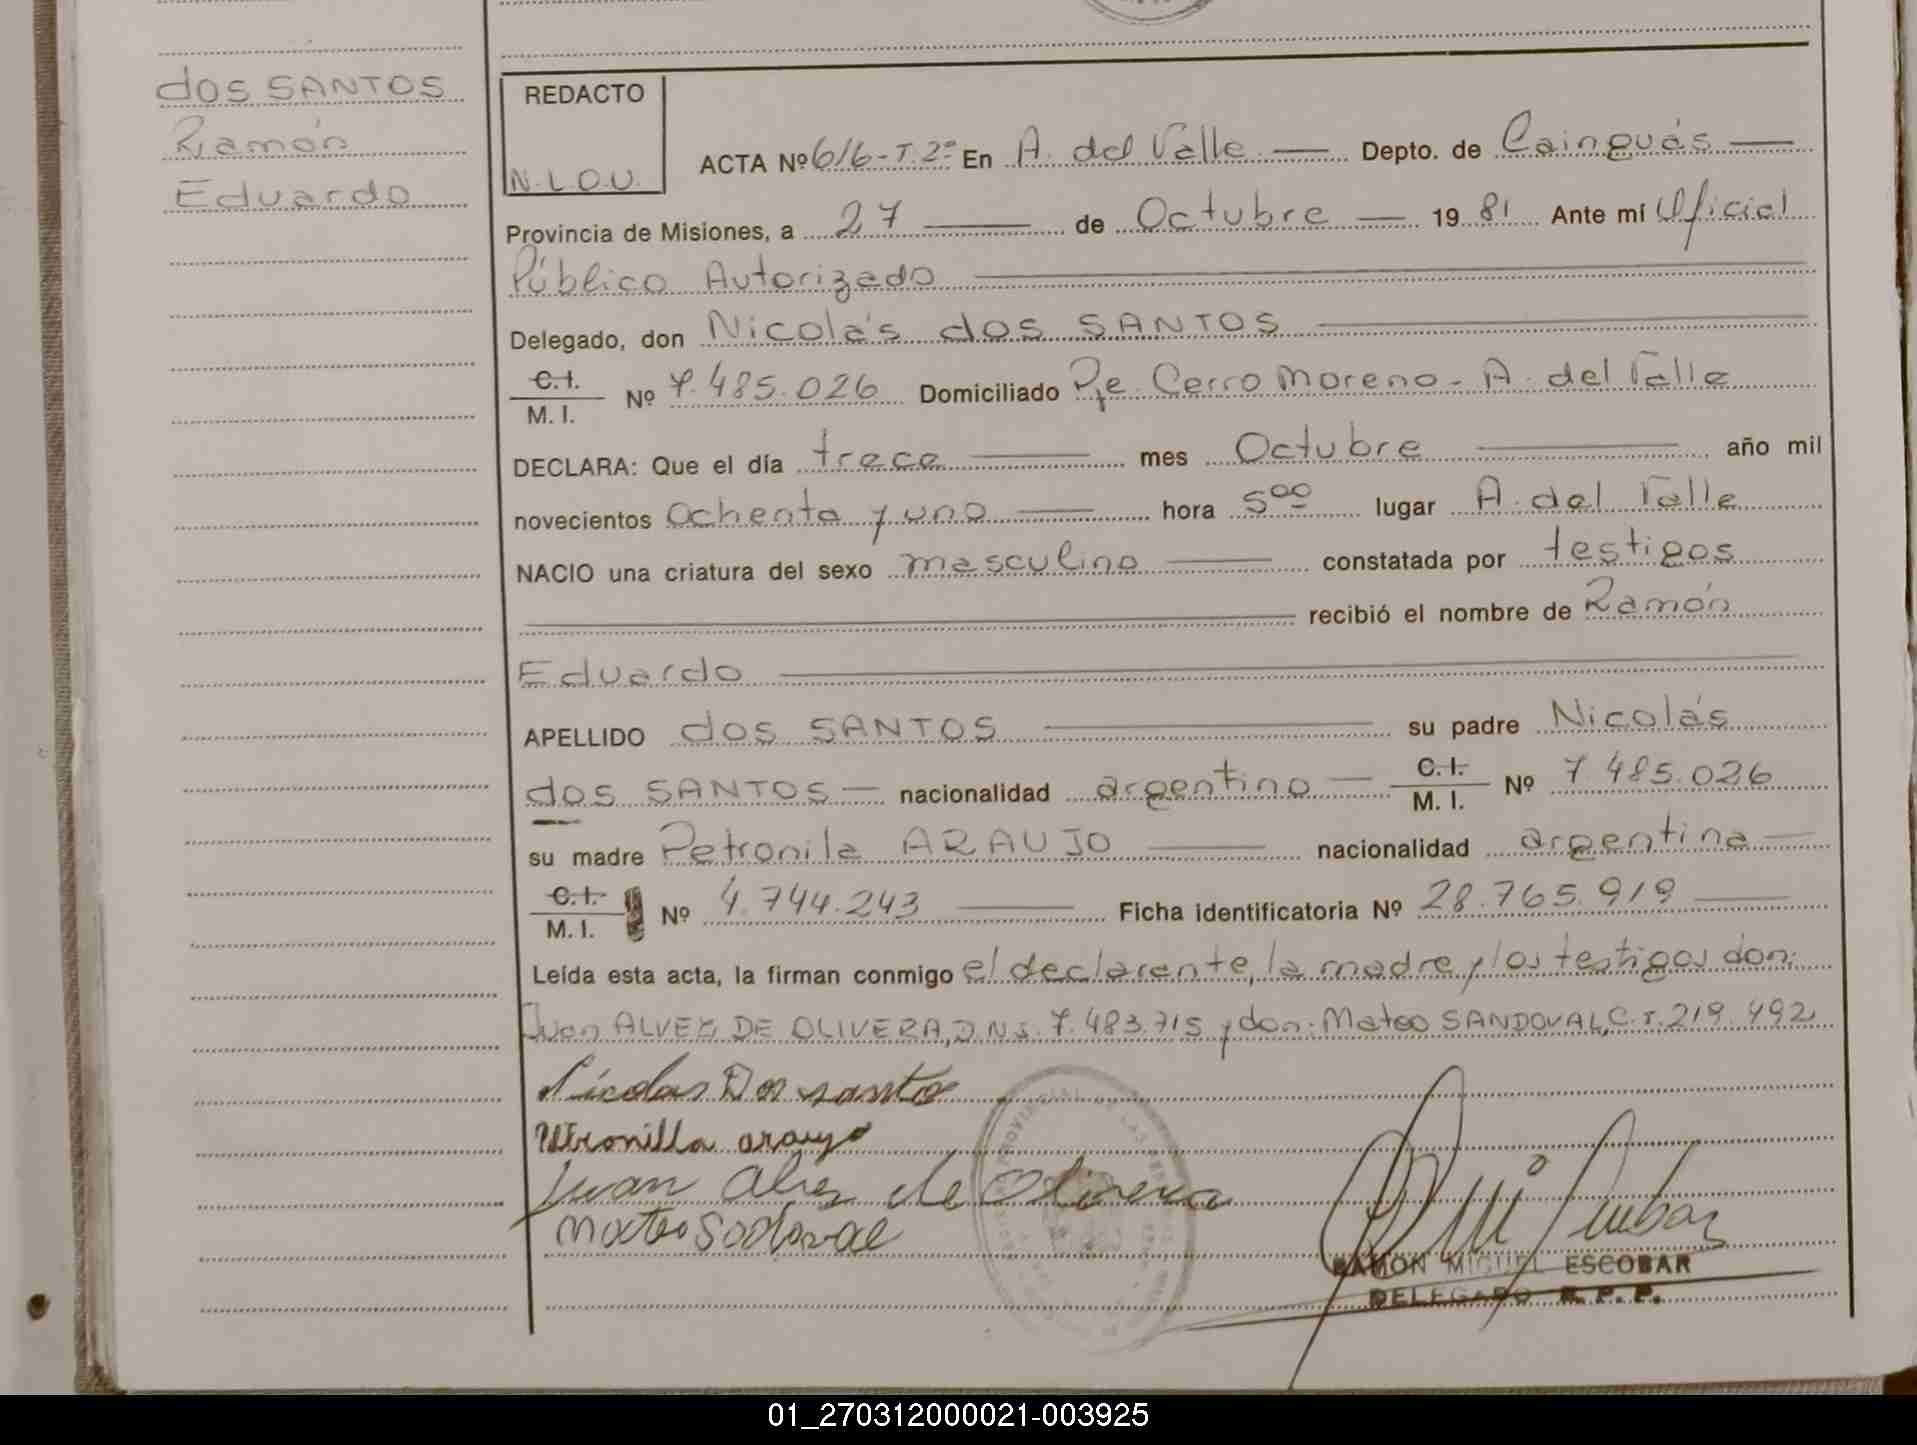 dos SANTOS
Ramón
Eduardo
REDACTO
N.L.O.U.
ACTA Nº 616-T.2º En A. del Valle — Depto. de Cainguás —
Provincia de Misiones, a 27 — de Octubre — 19 81 Ante mí Oficial
Público Autorizado
Delegado, don Nicolás dos SANTOS
C.I. M.I. Nº 7.485.026 Domiciliado Pje. Cerro Moreno - A. del Valle
DECLARA: Que el día trece — mes Octubre — año mil
novecientos Ochenta y uno — hora 5⁰⁰ lugar A. del Valle
NACIO una criatura del sexo masculino — constatada por testigos
— recibió el nombre de Ramón
Eduardo —
APELLIDO dos SANTOS — su padre Nicolás
dos SANTOS — nacionalidad argentino — C.I. M.I. Nº 7.485.026
su madre Petronila ARAUJO — nacionalidad argentina —
C.I. M.I. Nº 4.744.243 — Ficha identificatoria Nº 28.765.919 —
Leída esta acta, la firman conmigo el declarante, la madre y los testigos don:
Juan ALVEZ DE OLIVERA, D.N.I. 7.483.715 y don: Mateo SANDOVAL, C.I. 219.492
Nicolas Dos santo
Petronilla araujo
Juan Alvez de Olivera
Mateo Sodoval
RAMON MIGUEL ESCOBAR
DELEGADO R.P.P.
01_270312000021-003925